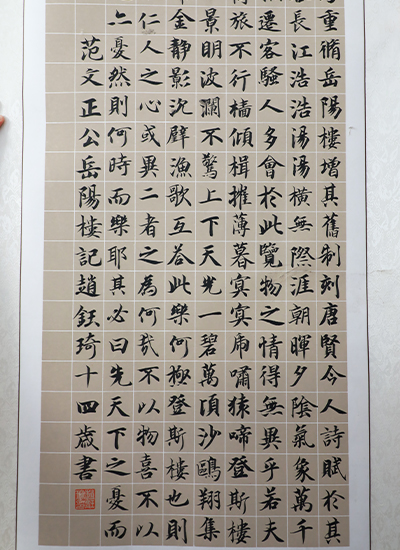 重脩岳陽樓增其舊制刻唐賢今人詩賦於其
長江浩浩湯湯橫無際涯朝暉夕陰氣象萬千
遷客騷人多會於此覽物之情得無異乎若夫
旅不行檣傾楫摧薄暮冥冥虎嘯猿啼登斯樓
景明波瀾不驚上下天光一碧萬頃沙鷗翔集
金靜影沈璧漁歌互答此樂何極登斯樓也則
仁人之心或異二者之為何哉不以物喜不以
亦憂然則何時而樂耶其必曰先天下之憂而
范文正公岳陽樓記趙鈺琦十四歲書